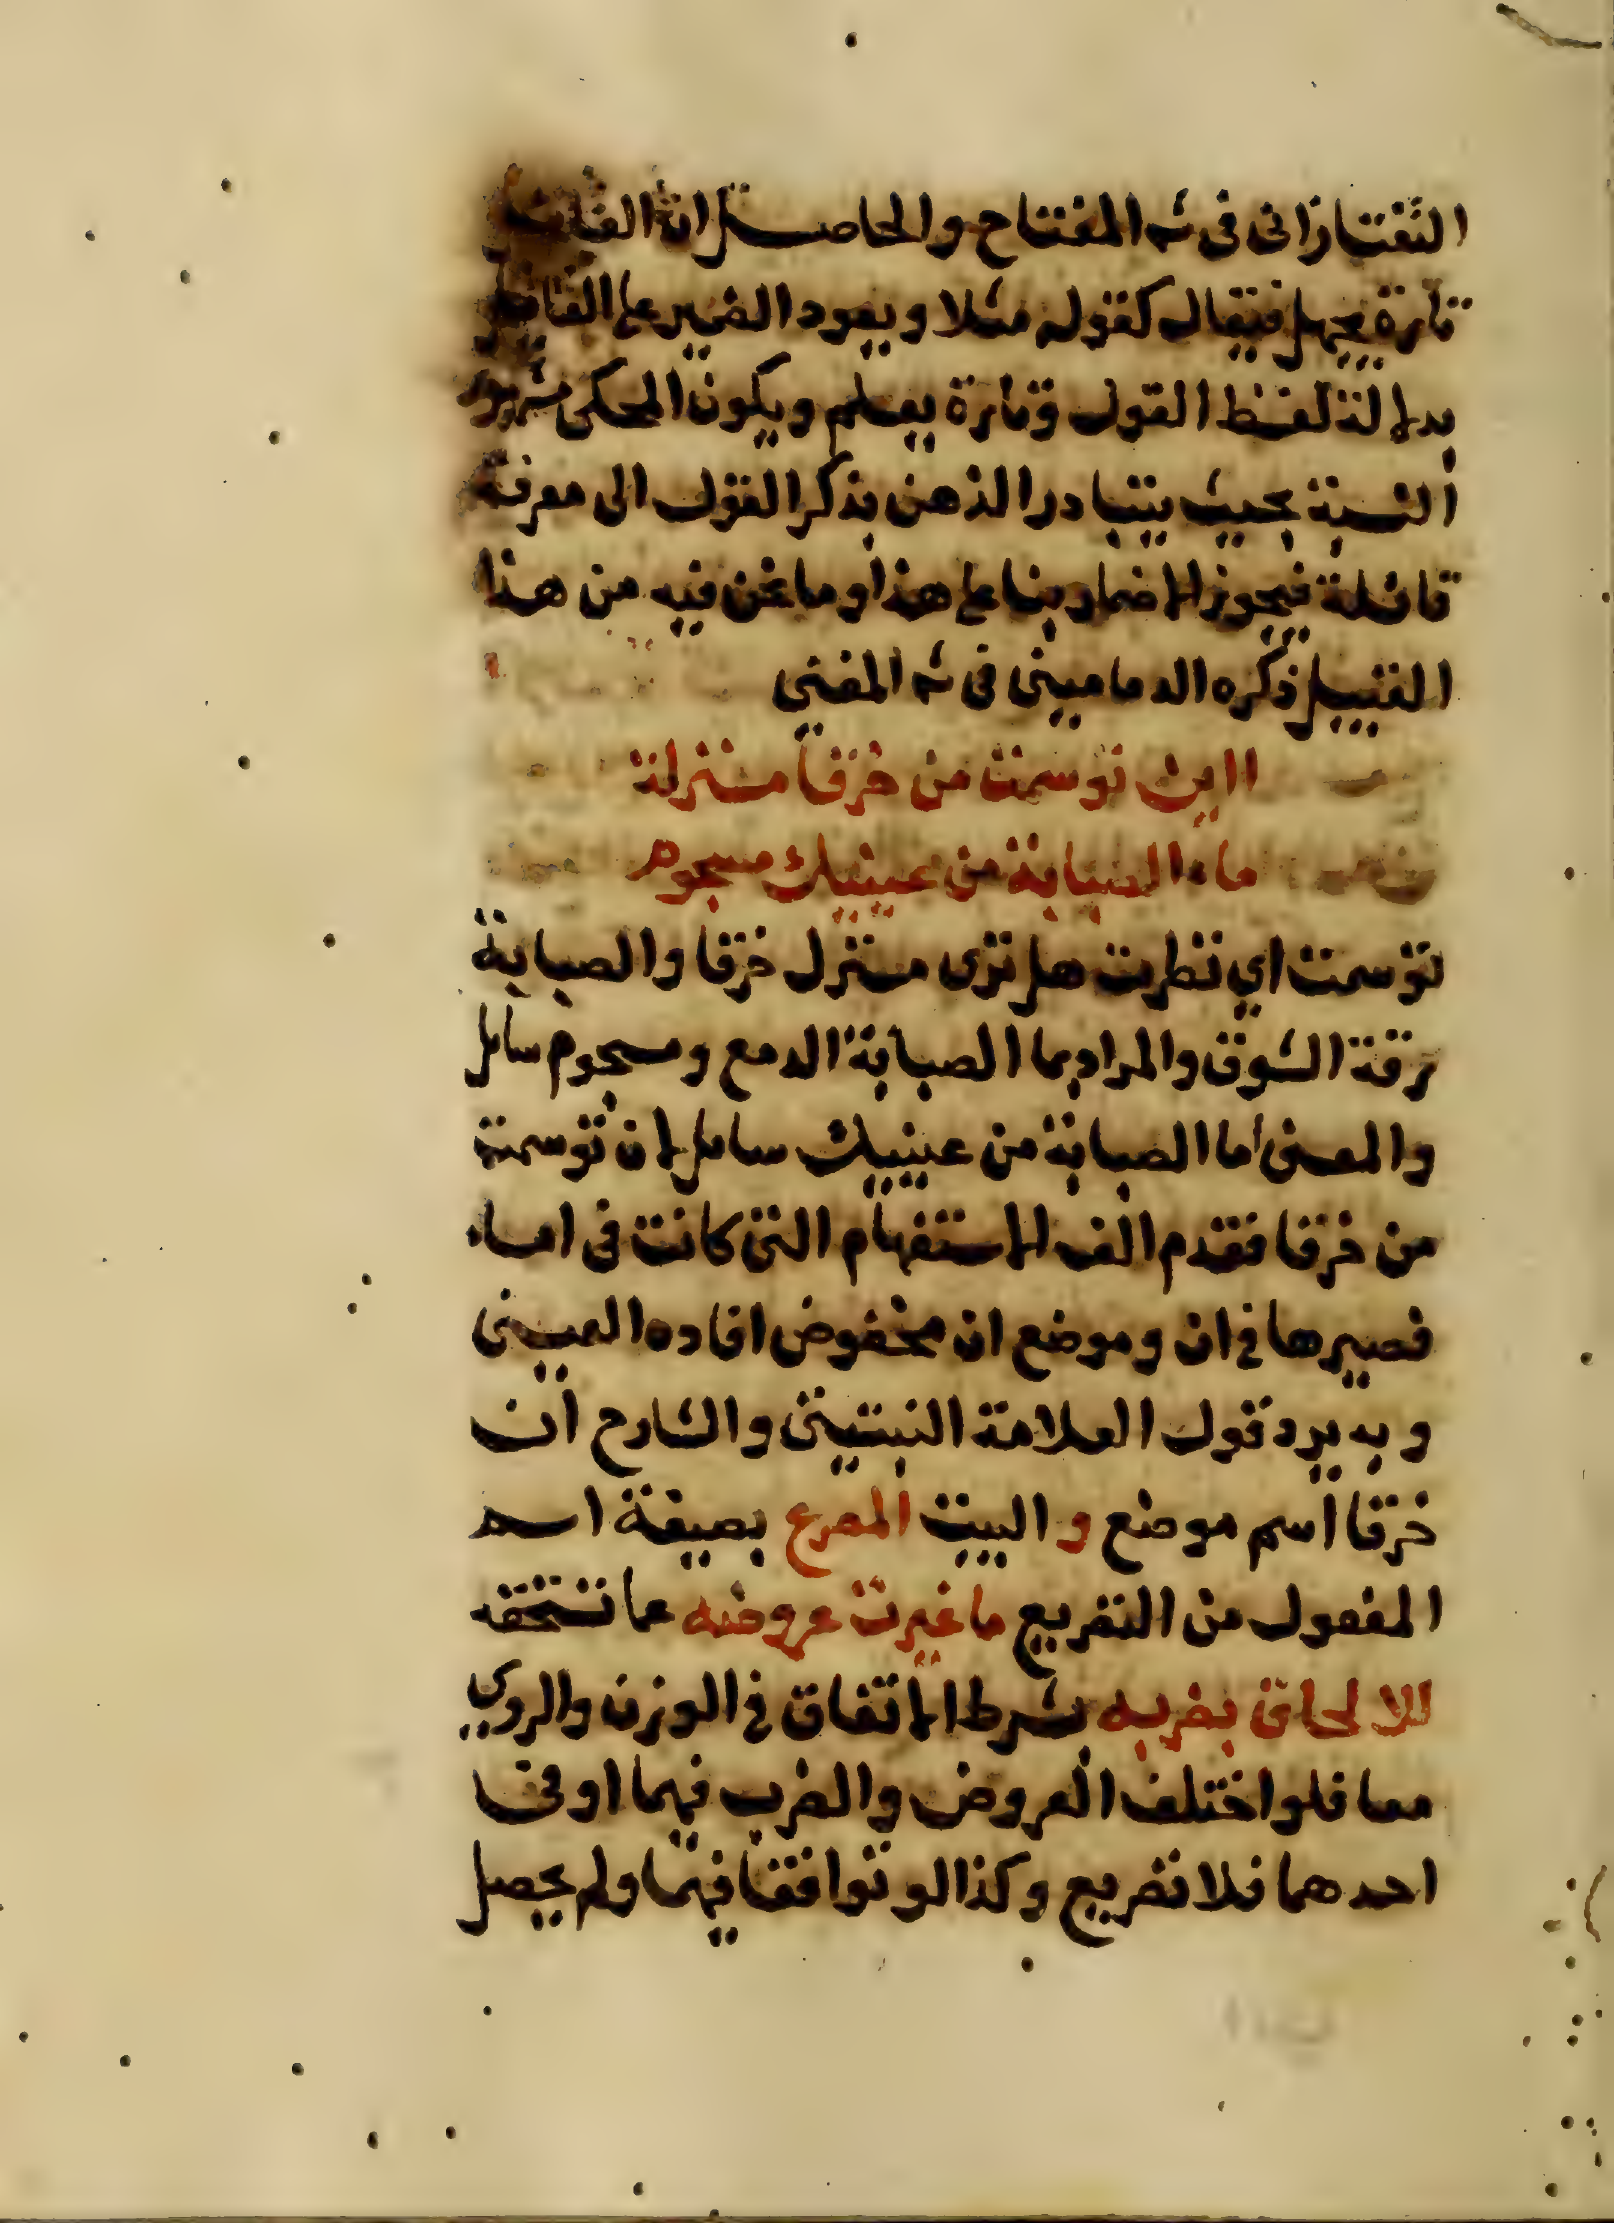 التفتازاني في شـ المفتاح والحاصل ان القائل
تارة يجهل فيقال كقوله مثلا ويعود الضمير على القائل
بدلالة لفظ القول وتارة يعلم ويكون المحكي مشهور
النسبة بحيث يتبادر الذهن بذكر القول الى معرفة
قائله فيجوز الاضمار بناء على هذا وما نحن فيه من هذا
القبيل ذكره الدماميني في شـ المغني
اان توسمت من خرقا منزلة
ماء الصبابة من عينيك مسجوم
توسمت اي نظرت هل ترى منزل خرقا والصبابة
رقة الشوق والمراد بما الصبابة الدمع ومسجوم سايل
والمعنى اما الصبابة من عينيك سايل لان توسمت
من خرقا فقدم الف الاستفهام التي كانت في امساء
فصيرها في ان وموضع ان مخفوض افاده العيني
وبه يرد قول العلامة النبتيتي والشارح ان
خرقا اسم موضع و البيت المصرع بصيغة اسم
المفعول من التصريع ما غيرت عروضه عما تستحقه
للالحاق بضربه بشرط الاتفاق في الوزن والروي
معا فلو اختلف العروض والضرب فيهما او في
احدهما فلا تصريع وكذا لو توافقا فيهما ولم يحصل